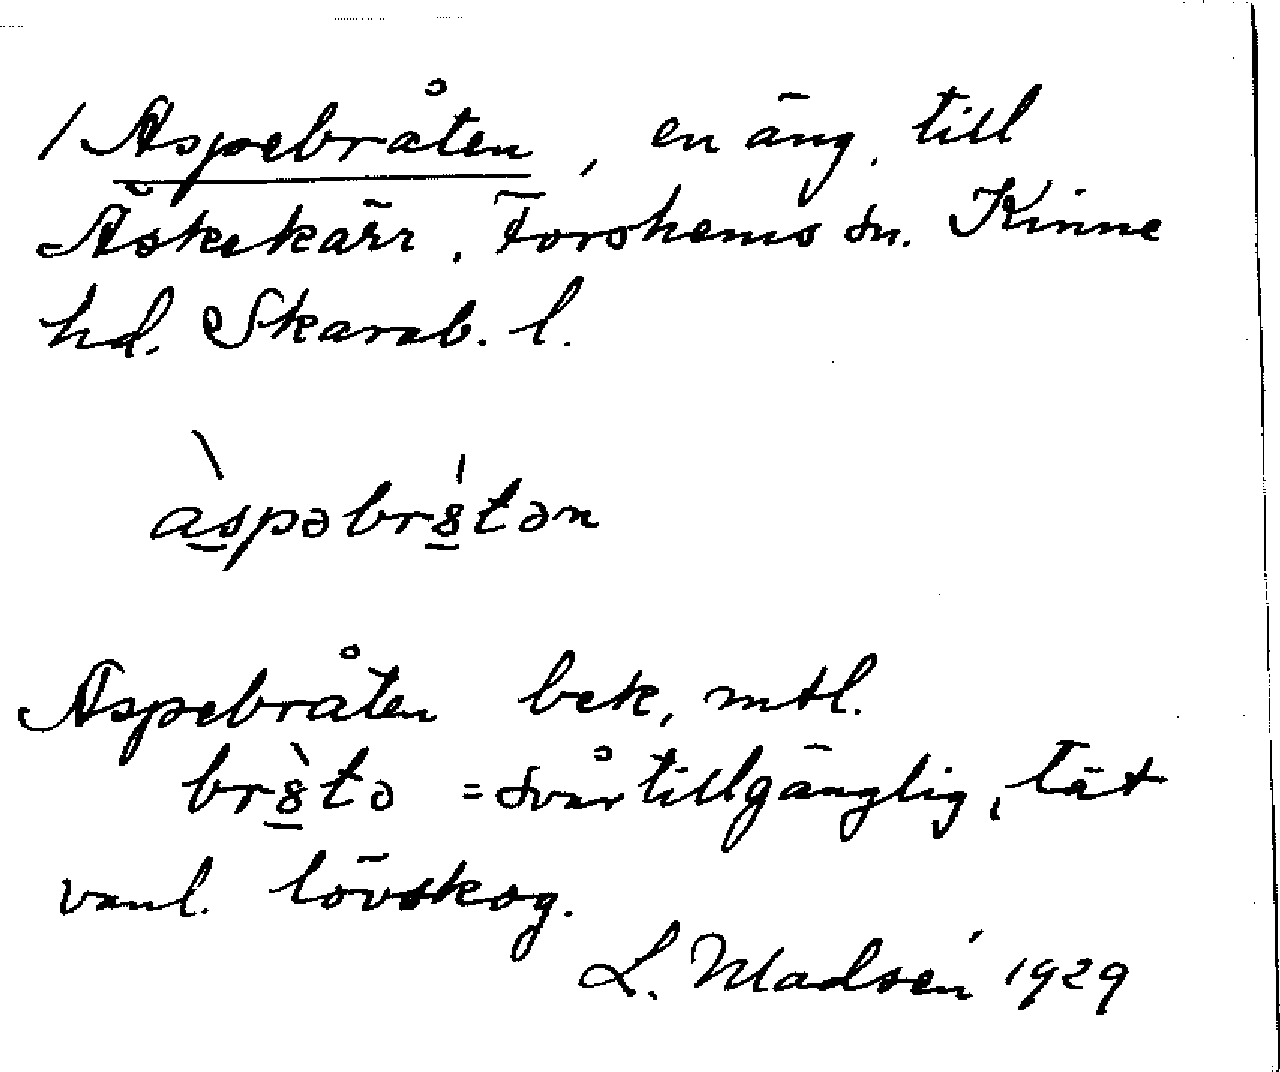 / Aspebråten, en äng, till
Äskekärr, Forshems sn. Kinne
hd. Skarab. l.
àspəbr8́tən
Aspebråten bek, mtl.
br8̀tə = svårtillgänglig, tät
vanl. lövskog.
L. Madsén 1929